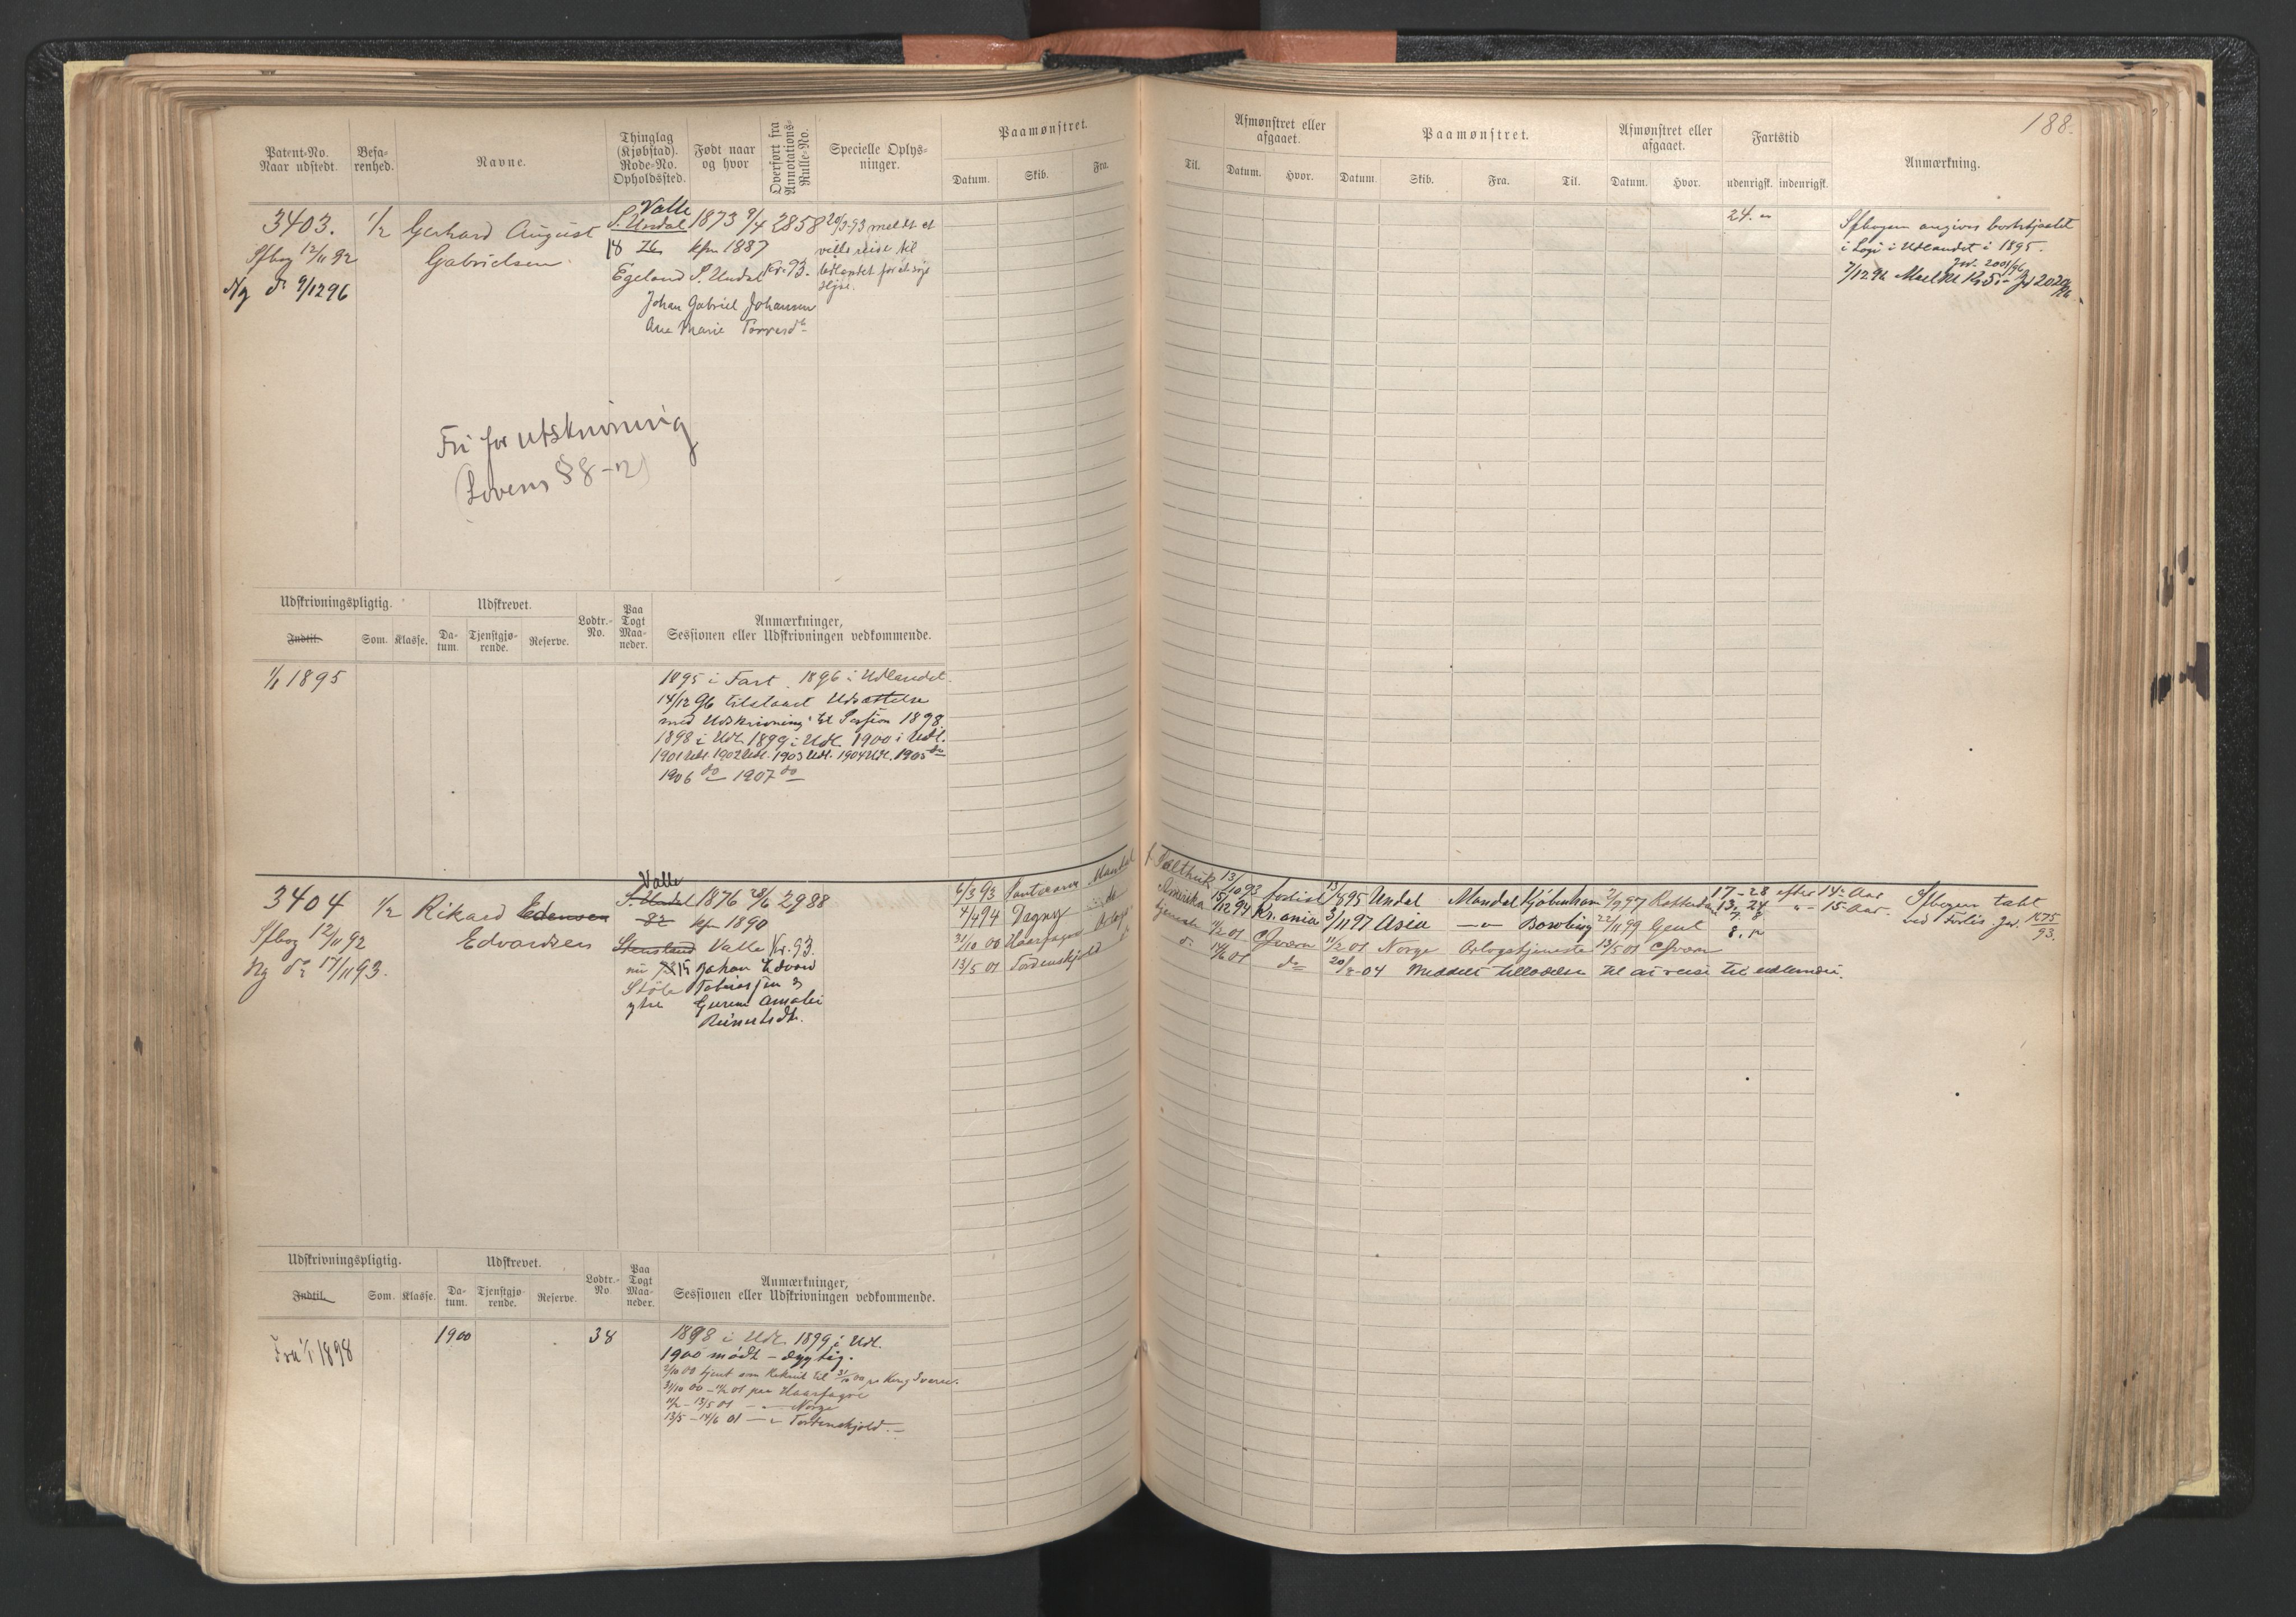 188.
Patent-No. Naar udstedt.
Befarenhed.
Navne.
Thinglag (Kjøbstad). Rode-No. Opholdssted.
Født naar og hvor
Overført fra Annotations-Rulle-No.
Specielle Oplysninger.
Paamønstret.
Datum. Skib. Fra. Til.
Afmønstret eller afgaaet.
Datum. Hvor.
Paamønstret.
Datum. Skib. Fra. Til.
Afmønstret eller afgaaet.
Datum. Hvor.
Fartstid
udenrigsk. indenrigsk.
Anmærkning.
3403.
Sfbog 12/11 92
Ny do 9/12 96
1/2
Gerhard August
Gabrielsen
Valle
S. Undal
18
Egeland
1873 9/4
kfm 1887
S. Undal
Johan Gabriel Johansen
Ane Marie
2858
Kr. 93.
20/3-93 meldt at
vilde reise til
Udlandet for at søge
Hyre.
24.
Sfbogen angives bortstjaalet
i Logi i Udlandet i 1895.
Jn. 2001/96
Fri for utskrivning
(Lovens § 8-2)
Udskrivningspligtig.
Indtil. Som. Klasse.
Udskrevet.
Datum. Tjenstgjørende. Reserve.
Lodtr.-No.
Paa Togt Maaneder.
Anmærkninger,
Sessionen eller Udskrivningen vedkommende.
1/1 1895
1895 i Fart 1896 i Udlandet.
14/12 96 tilstaaet Udsættelse
med Udskrivning til Session 1898.
1898 i Udl. 1899 i Udl. 1900 i Udl.
1901 Udl. 1902 Udl. 1903 Udl. 1904 Udl. 1905 do
1906 do 1907 do
3404
Sfbog 12/11 92
Ny do 17/11 93.
1/2
Rikard Edensen
Edvardsen
Valle
S. Undal
82
Stensland
nu
Støle
ytre
1876 28/6
kfm 1890
Valle
Johan Edvard
Tobiassen og
Gurine Amalie
Reinertsdtr.
2988
Kr. 93.
6/3 93 Mandal
4/4 94 Dagny do Amerika 15/12 94 Kr.ania
31/10 00 Haarfagre Orlogstjeneste 11/2 01 Hværn
13/5 01 Tordenskjold do do 14/6 01 do
13/8 95 Undal Mandal Kjøbenhavn
3/11 97 Asia Bowling 22/11 99 Gent
11/2 01 Norge Orlogstjeneste 13/5 01 Hværn
20/8-04 Meddelt tilladelse til at reise til udlandet.
17-28 efter 14 Aar
13-24 15 Aar
Sfbogen tabt
ved Forlis Jn. 1675/93.
Udskrivningspligtig.
Indtil. Som. Klasse.
Udskrevet.
Datum. Tjenstgjørende. Reserve.
Lodtr.-No.
Paa Togt Maaneder.
Anmærkninger,
Sessionen eller Udskrivningen vedkommende.
Fra 1/1 1898
1900
38
1898 i Udl. 1899 i Udl.
1900 mødt - dygtig.
2/10 00 tjent som Rekrut til 31/10 00 pa Kong Sverre.
31/10 00 - 11/2 01 paa Haarfagre
11/2 - 13/5 01 - Norge
13/5 - 14/6 01 - Tordenskjold.